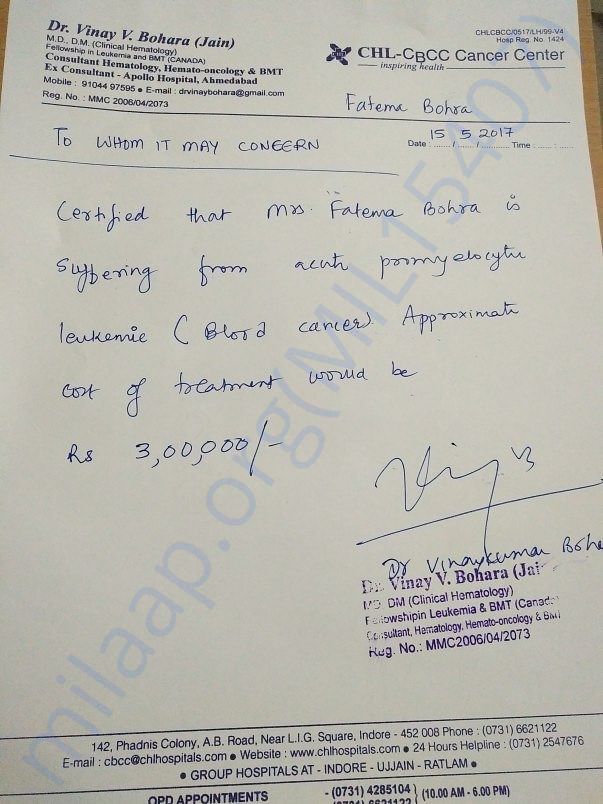 Dr. Vinay V. Bohara (Jain)
M.D., D.M. (Clinical Hematology)
Fellowship in Leukemia and BMT (CANADA)
Consultant Hematology, Hemato-oncology & BMT
Ex Consultant - Apollo Hospital, Ahmedabad
Mobile : 91044 97595 ● E-mail : drvinaybohara@gmail.com
Reg. No. : MMC 2006/04/2073
CHLCBCC/0517/LH/99-V4
Hosp Reg. No. 1424
CHL-CBCC Cancer Center
inspiring health
Fatema Bohra
Date : 15 / 5 / 2017 Time : ...... : ......
To WHOM IT MAY CONCERN
Certified that Mrs. Fatema Bohra is
suffering from acute promyelocytic
leukemia (Blood cancer). Approximate
cost of treatment would be
Rs 3,00,000/-
Dr Vinaykumar Boha
Dr. Vinay V. Bohara (Jai
MD DM (Clinical Hematology)
Fellowshipin Leukemia & BMT (Canad
Consultant, Hematology, Hemato-oncology & BMT
Reg. No.: MMC2006/04/2073
milaap.org(MIL15407)
142, Phadnis Colony, A.B. Road, Near L.I.G. Square, Indore - 452 008 Phone : (0731) 6621122
E-mail : cbcc@chlhospitals.com ● Website : www.chlhospitals.com ● 24 Hours Helpline : (0731) 2547676
● GROUP HOSPITALS AT - INDORE - UJJAIN - RATLAM ●
OPD APPOINTMENTS - (0731) 4285104 } (10.00 AM - 6.00 PM)